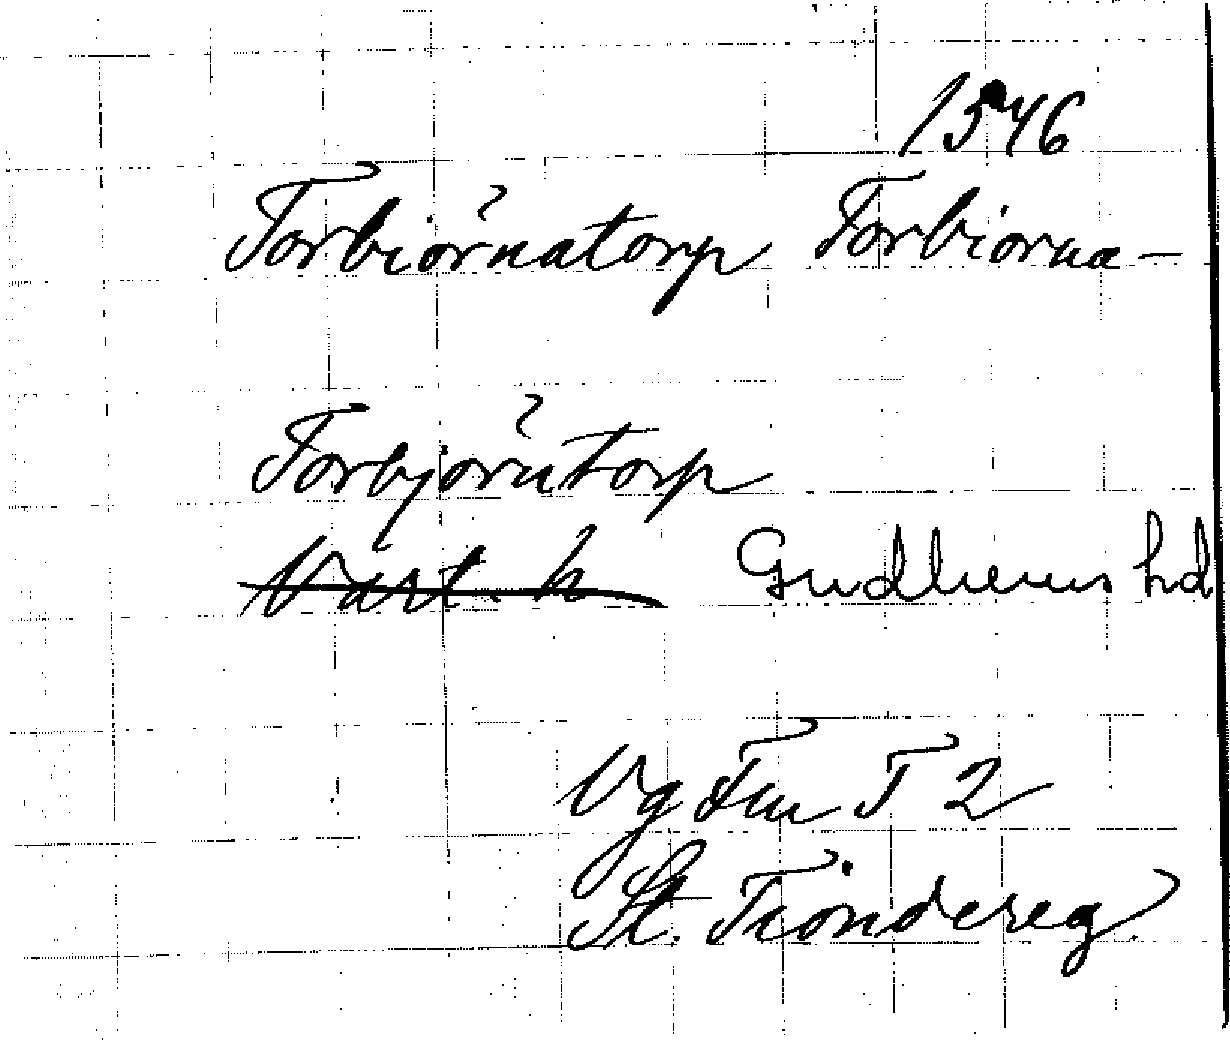 1546
Torbiörnatorp Torbiorna-
Torbjörntorp
Vart. h Gudhems hd
Vg Fm T 2
St. Tiondereg.